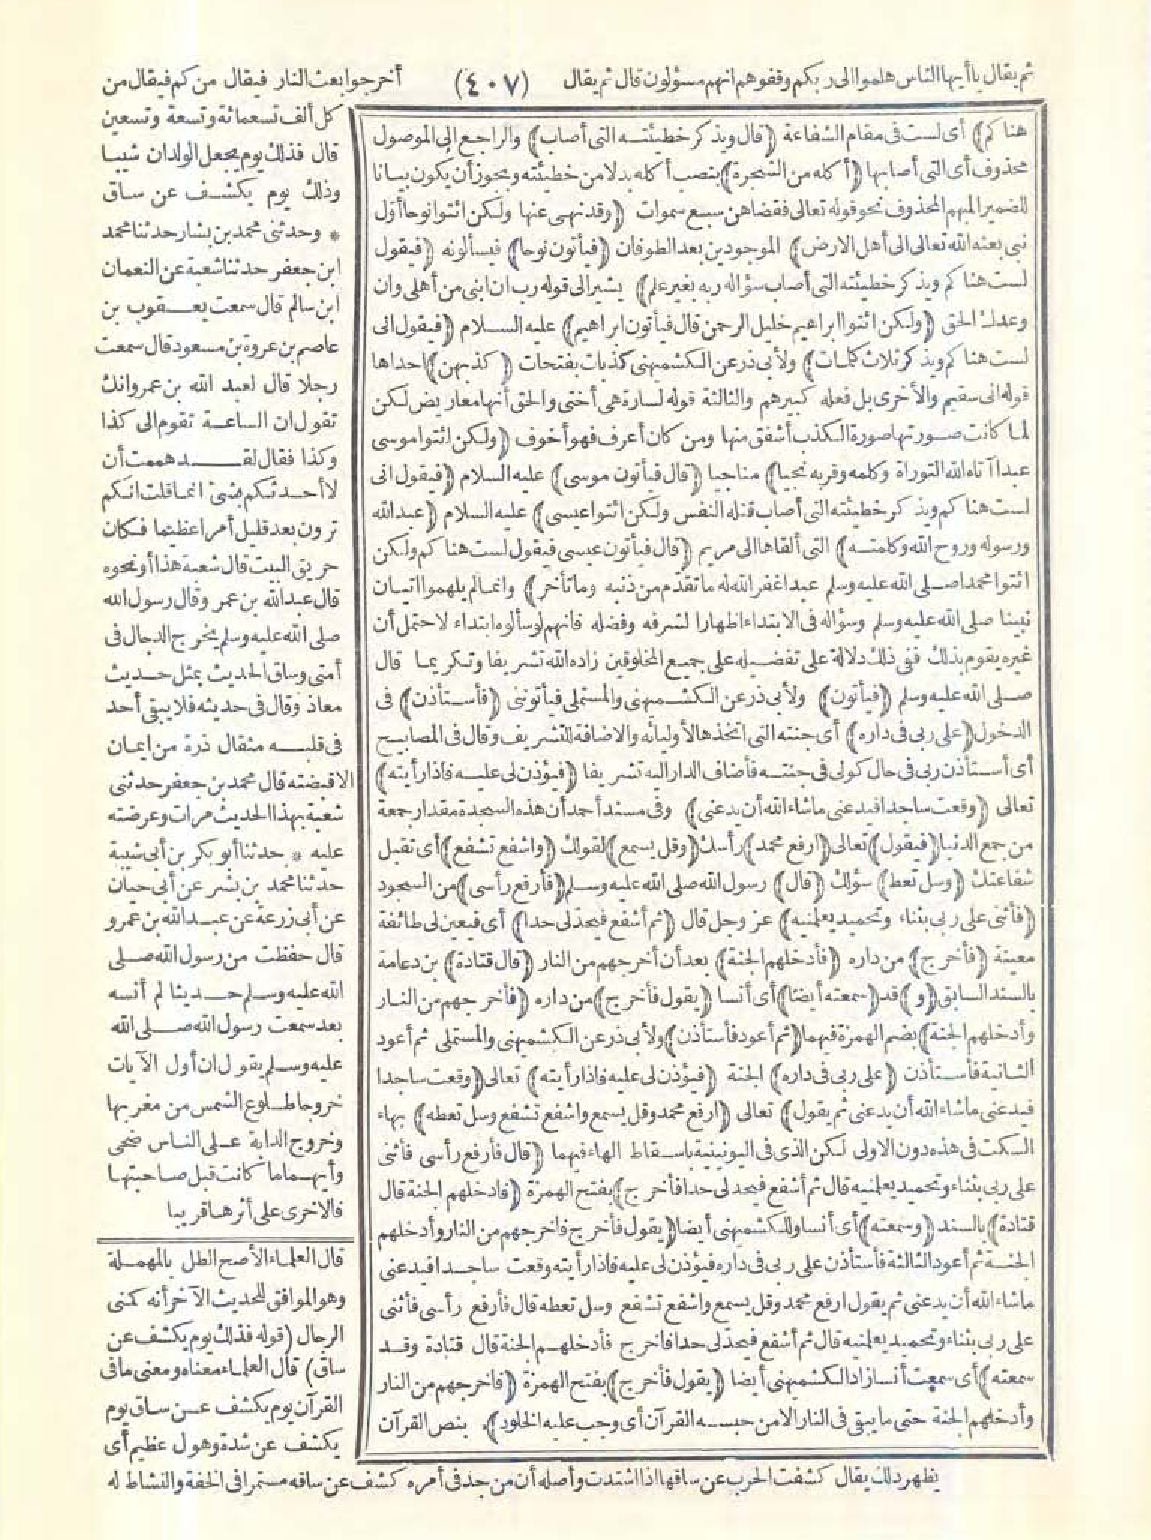 ثم يقال يا أيها الناس هلموا الى ربكم وقفوهم انهم مسؤلون قال ثم يقال (٤٠٧) أخرجوا بعث النار فيقال من كم فيقال من
هناكم) أى لست فى مقام الشفاعة (قال ويذكر خطيئته التى أصاب) والراجع الى الموصول
محذوف أى التى أصابها (أكله من الشجرة) بنصب أكله بدلا من خطيئته ويجوز أن يكون بيانا
للضمير المبهم المحذوف نحو قوله تعالى فقضاهن سبع سموات (وقد نهى عنها ولكن ائتوا نوحا أول
نبى بعثه الله تعالى الى أهل الارض) الموجودين بعد الطوفان (فيأتون نوحا) فيسألونه (فيقول
لست هناكم ويذكر خطيئته التى أصاب سؤاله ربه بغير علم) يشير الى قوله رب ان ابنى من أهلى وان
وعدك الحق (ولكن ائتوا ابراهيم خليل الرحمن قال فيأتون ابراهيم) عليه السلام (فيقول انى
لست هناكم ويذكر ثلاث كلمات) ولأبى ذر عن الكشميهنى كذبات بفتحات (كذبهن) احداها
قوله انى سقيم والأخرى بل فعله كبيرهم والثالثة قوله لسارة هى أختى والحق أنها معاريض لكن
لما كانت صورتها صورة الكذب أشفق منها ومن كان أعرف فهو أخوف (ولكن ائتوا موسى
عبدا آتاه الله التوراة وكلمه وقربه نجيا) مناجيا (قال فيأتون موسى) عليه السلام (فيقول انى
لست هناكم ويذكر خطيئته التى أصاب قتله النفس ولكن ائتوا عيسى) عليه السلام (عبد الله
ورسوله وروح الله وكلمته) التى ألقاها الى مريم (قال فيأتون عيسى فيقول لست هناكم ولكن
ائتوا محمدا صلى الله عليه وسلم عبدا غفر الله له ما تقدم من ذنبه وما تأخر) وانما لم يلهموا اتيان
نبينا صلى الله عليه وسلم وسؤاله فى الابتداء اظهارا لشرفه وفضله فانهم لو سألوه ابتداء لاحتمل أن
غيره يقوم بذلك ففى ذلك دلالة على تفضيله على جميع المخلوقين زاده الله تشريفا وتكريما قال
صلى الله عليه وسلم (فيأتون) ولأبى ذر عن الكشميهنى والمستملى فيأتونى (فأستأذن) فى
الدخول (على ربى فى داره) أى جنته التى اتخذها لأوليائه والاضافة للتشريف وقال فى المصابيح
أى أستأذن ربى فى حال كونى فى جنته فأضاف الدار اليه تشريفا (فيؤذن لى عليه فاذا رأيته)
تعالى (وقعت ساجدا فيدعنى ما شاء الله أن يدعنى) وفى مسند أحمد أن هذه السجدة مقدار جمعة
من جمع الدنيا (فيقول) تعالى (ارفع محمد) رأسك (وقل يسمع) لقولك (واشفع تشفع) أى تقبل
شفاعتك (وسل تعط) سؤلك (قال) رسول الله صلى الله عليه وسلم (فأرفع رأسى) من السجود
(فأثنى على ربى بثناء وتحميد يعلمنيه) عز وجل قال (ثم أشفع فيحد لى حدا) أى فيعين لى طائفة
معينة (فأخرج) من داره (فأدخلهم الجنة) بعد أن أخرجهم من النار (قال قتادة) بن دعامة
بالسند السابق (و) قد (سمعته أيضا) أى أنسا (يقول فأخرج) من داره (فأخرجهم من النار
وأدخلهم الجنة) بضم الهمزة فيهما (ثم أعود فأستأذن) ولأبى ذر عن الكشميهنى والمستملى ثم أعود
الثانية فأستأذن (على ربى فى داره) الجنة (فيؤذن لى عليه فاذا رأيته) تعالى (وقعت ساجدا
فيدعنى ما شاء الله أن يدعنى ثم يقول) تعالى (ارفع محمد وقل يسمع واشفع تشفع وسل تعطه) بهاء
السكت فى هذه دون الاولى لكن الذى فى اليونينية باسقاط الهاء فيهما (قال فأرفع رأسى فأثنى
على ربى بثناء وتحميد يعلمنيه قال ثم أشفع فيحد لى حدا فأخرج) بفتح الهمزة (فادخلهم الجنة قال
قتادة) بالسند (وسمعته) أى أنسا وللكشميهنى أيضا (يقول فأخرج فاخرجهم من النار وأدخلهم
الجنة ثم أعود الثالثة فأستأذن على ربى فى داره فيؤذن لى عليه فاذا رأيته وقعت ساجدا فيدعنى
ما شاء الله أن يدعنى ثم يقول ارفع محمد وقل يسمع واشفع تشفع وسل تعطه قال فأرفع رأسى فأثنى
على ربى بثناء وتحميد يعلمنيه قال ثم أشفع فيحد لى حدا فاخرج فأدخلهم الجنة قال قتادة وقد
سمعته) أى سمعت أنسا زاد الكشميهنى أيضا (يقول فأخرج) بفتح الهمزة (فاخرجهم من النار
وأدخلهم الجنة حتى ما يبقى فى النار الا من حبسه القرآن أى وجب عليه الخلود) بنص القرآن
كل ألف تسعمائة وتسعة وتسعين
قال فذلك يوم يجعل الولدان شيبا
وذلك يوم يكشف عن ساق
* وحدثنى محمد بن بشار حدثنا محمد
ابن جعفر حدثنا شعبة عن النعمان
ابن سالم قال سمعت يعقوب بن
عاصم بن عروة بن مسعود قال سمعت
رجلا قال لعبد الله بن عمرو انك
تقول ان الساعة تقوم الى كذا
وكذا فقال لقد هممت أن
لا أحدثكم بشئ انما قلت انكم
ترون بعد قليل أمرا عظيما فكان
حريق البيت قال شعبة هذا أو نحوه
قال عبد الله بن عمر وقال رسول الله
صلى الله عليه وسلم يخرج الدجال فى
أمتى وساق الحديث بمثل حديث
معاذ وقال فى حديثه فلا يبقى أحد
فى قلبه مثقال ذرة من ايمان
الا قبضته قال محمد بن جعفر حدثنى
شعبة بهذا الحديث مرات وعرضته
عليه * حدثنا أبو بكر بن أبى شيبة
حدثنا محمد بن بشر عن أبى حيان
عن أبى زرعة عن عبد الله بن عمرو
قال حفظت من رسول الله صلى
الله عليه وسلم حديثا لم أنسه
بعد سمعت رسول الله صلى الله
عليه وسلم يقول ان أول الآيات
خروجا طلوع الشمس من مغربها
وخروج الدابة على الناس ضحى
وأيهما ما كانت قبل صاحبتها
فالاخرى على أثرها قريبا
قال العلماء الأصح الطل بالمهملة
وهو الموافق للحديث الآخر أنه كمنى
الرجال (قوله فذلك يوم يكشف عن
ساق) قال العلماء معناه ومعنى ما فى
القرآن يوم يكشف عن ساق يوم
يكشف عن شدة وهول عظيم أى
يظهر ذلك يقال كشفت الحرب عن ساقها اذا اشتدت وأصله أن من جد فى أمره كشف عن ساقه مستمرا فى الخفة والنشاط له